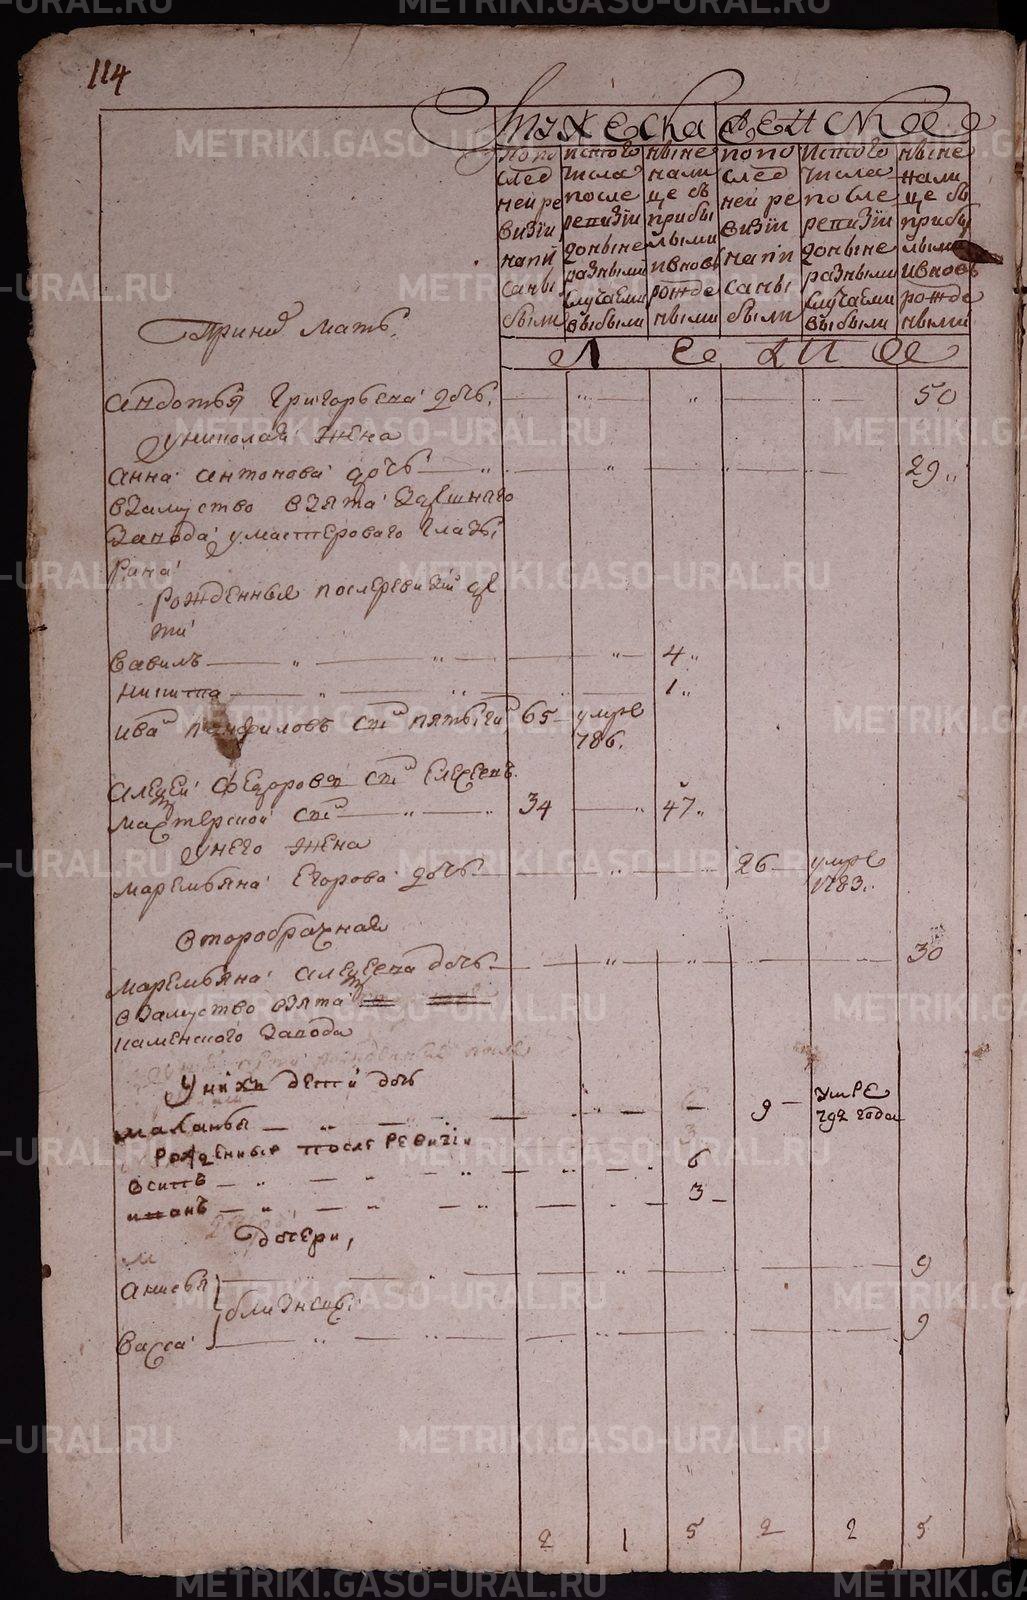 114
Мужеска Женское
по по след ней ре визiи напи саны были
ис того числа после ревизiи до ныне разными случаеми выбыли
ныне нали це съ прибы лыми и вновь рожде нными
по по след ней ре визiи напи саны были
Ис того числа после ревизiи до ныне разными случаеми выбыли
ныне нали це съ прибы лыми и вновь рожде нными
При нем мать
Л е т и е
Авдотья Григорьева дочь 50
у Николая жена
Анна Антонова дочь 29
взамуство взята здешнаго
завода у мастероваго
рожденныя после ревизiи де
ти
Вавилъ 4
Никита 1
Иван Панфиловъ сын 65 умре
786.
Алексей Федоров сын
мастерской сын 34 47
у него жена
Маремьяна Егорова дочь 26 умре
1783.
Второбрачная
Маремьяна Алексеева дочь 30
взамуство взята
каменского завода
У них детей дочь
Маланья 9 умре
792 года
рожденныя после ревизiи
Осипъ 6
Иванъ 3
дочери,
Анисья 9
близнецы
Васса 9
2 1 5 2 2 5
METRIKI.GASO-URAL.RU